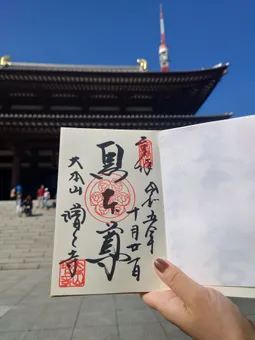 奉拝 令和五年
十月廿一日
黒本尊
大本山 増上寺